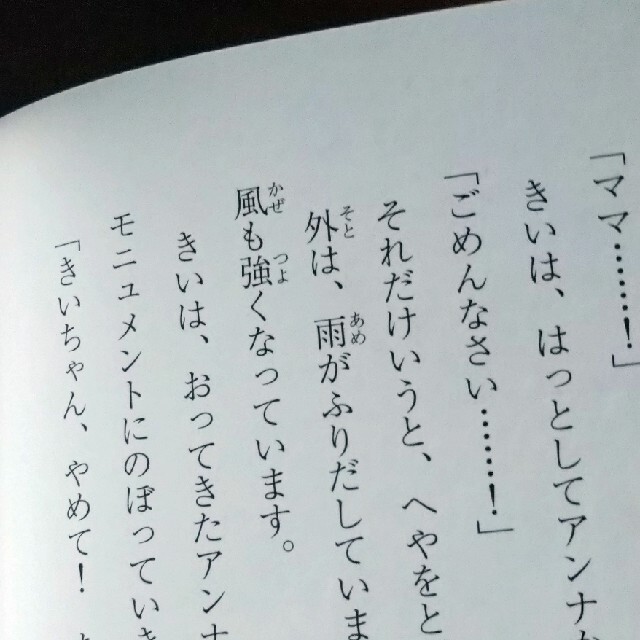 「ママ……！」
きいは、はっとしてアンナか
「ごめんなさい……！」
それだけいうと、へやをと
外は、雨がふりだしていま
風も強くなっています。
きいは、おってきたアンナ
モニュメントにのぼっていき
「きいちゃん、やめて！